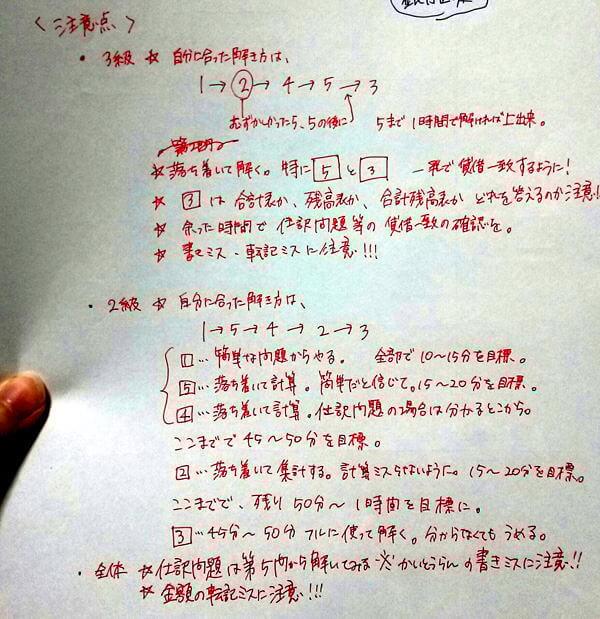 〈注意点〉
・3級 ☆ 自分に合った解き方は、
1→②→4→5→3
むずかしかったら、5の後に 5まで1時間で解ければ上出来。
☆落ち着いて解く。特に5と3 一発で貸借一致するように!
☆ 3は合計表か、残高表か、合計残高表か どれを答えるのか注意!
☆ 余った時間で仕訳問題等の貸借一致の確認を。
☆ 書きミス・転記ミスに注意!!!
・2級 ☆ 自分に合った解き方は、
1→5→4→2→3
1…簡単な問題からやる。 全部で10~15分を目標。
5…落ち着いて計算。簡単だと信じて。15~20分を目標。
4…落ち着いて計算。仕訳問題の場合は分かるとこから。
ここまでで45~50分を目標。
2…落ち着いて集計する。計算ミスらないように。15~20分を目標。
ここまでで、残り50分~1時間を目標に。
3…45分~50分フルに使って解く。分からなくてもうめる。
・全体 ☆仕訳問題は第5問から解いてみる ※かいとうらんの書きミスに注意!!
☆金額の転記ミスに注意!!!